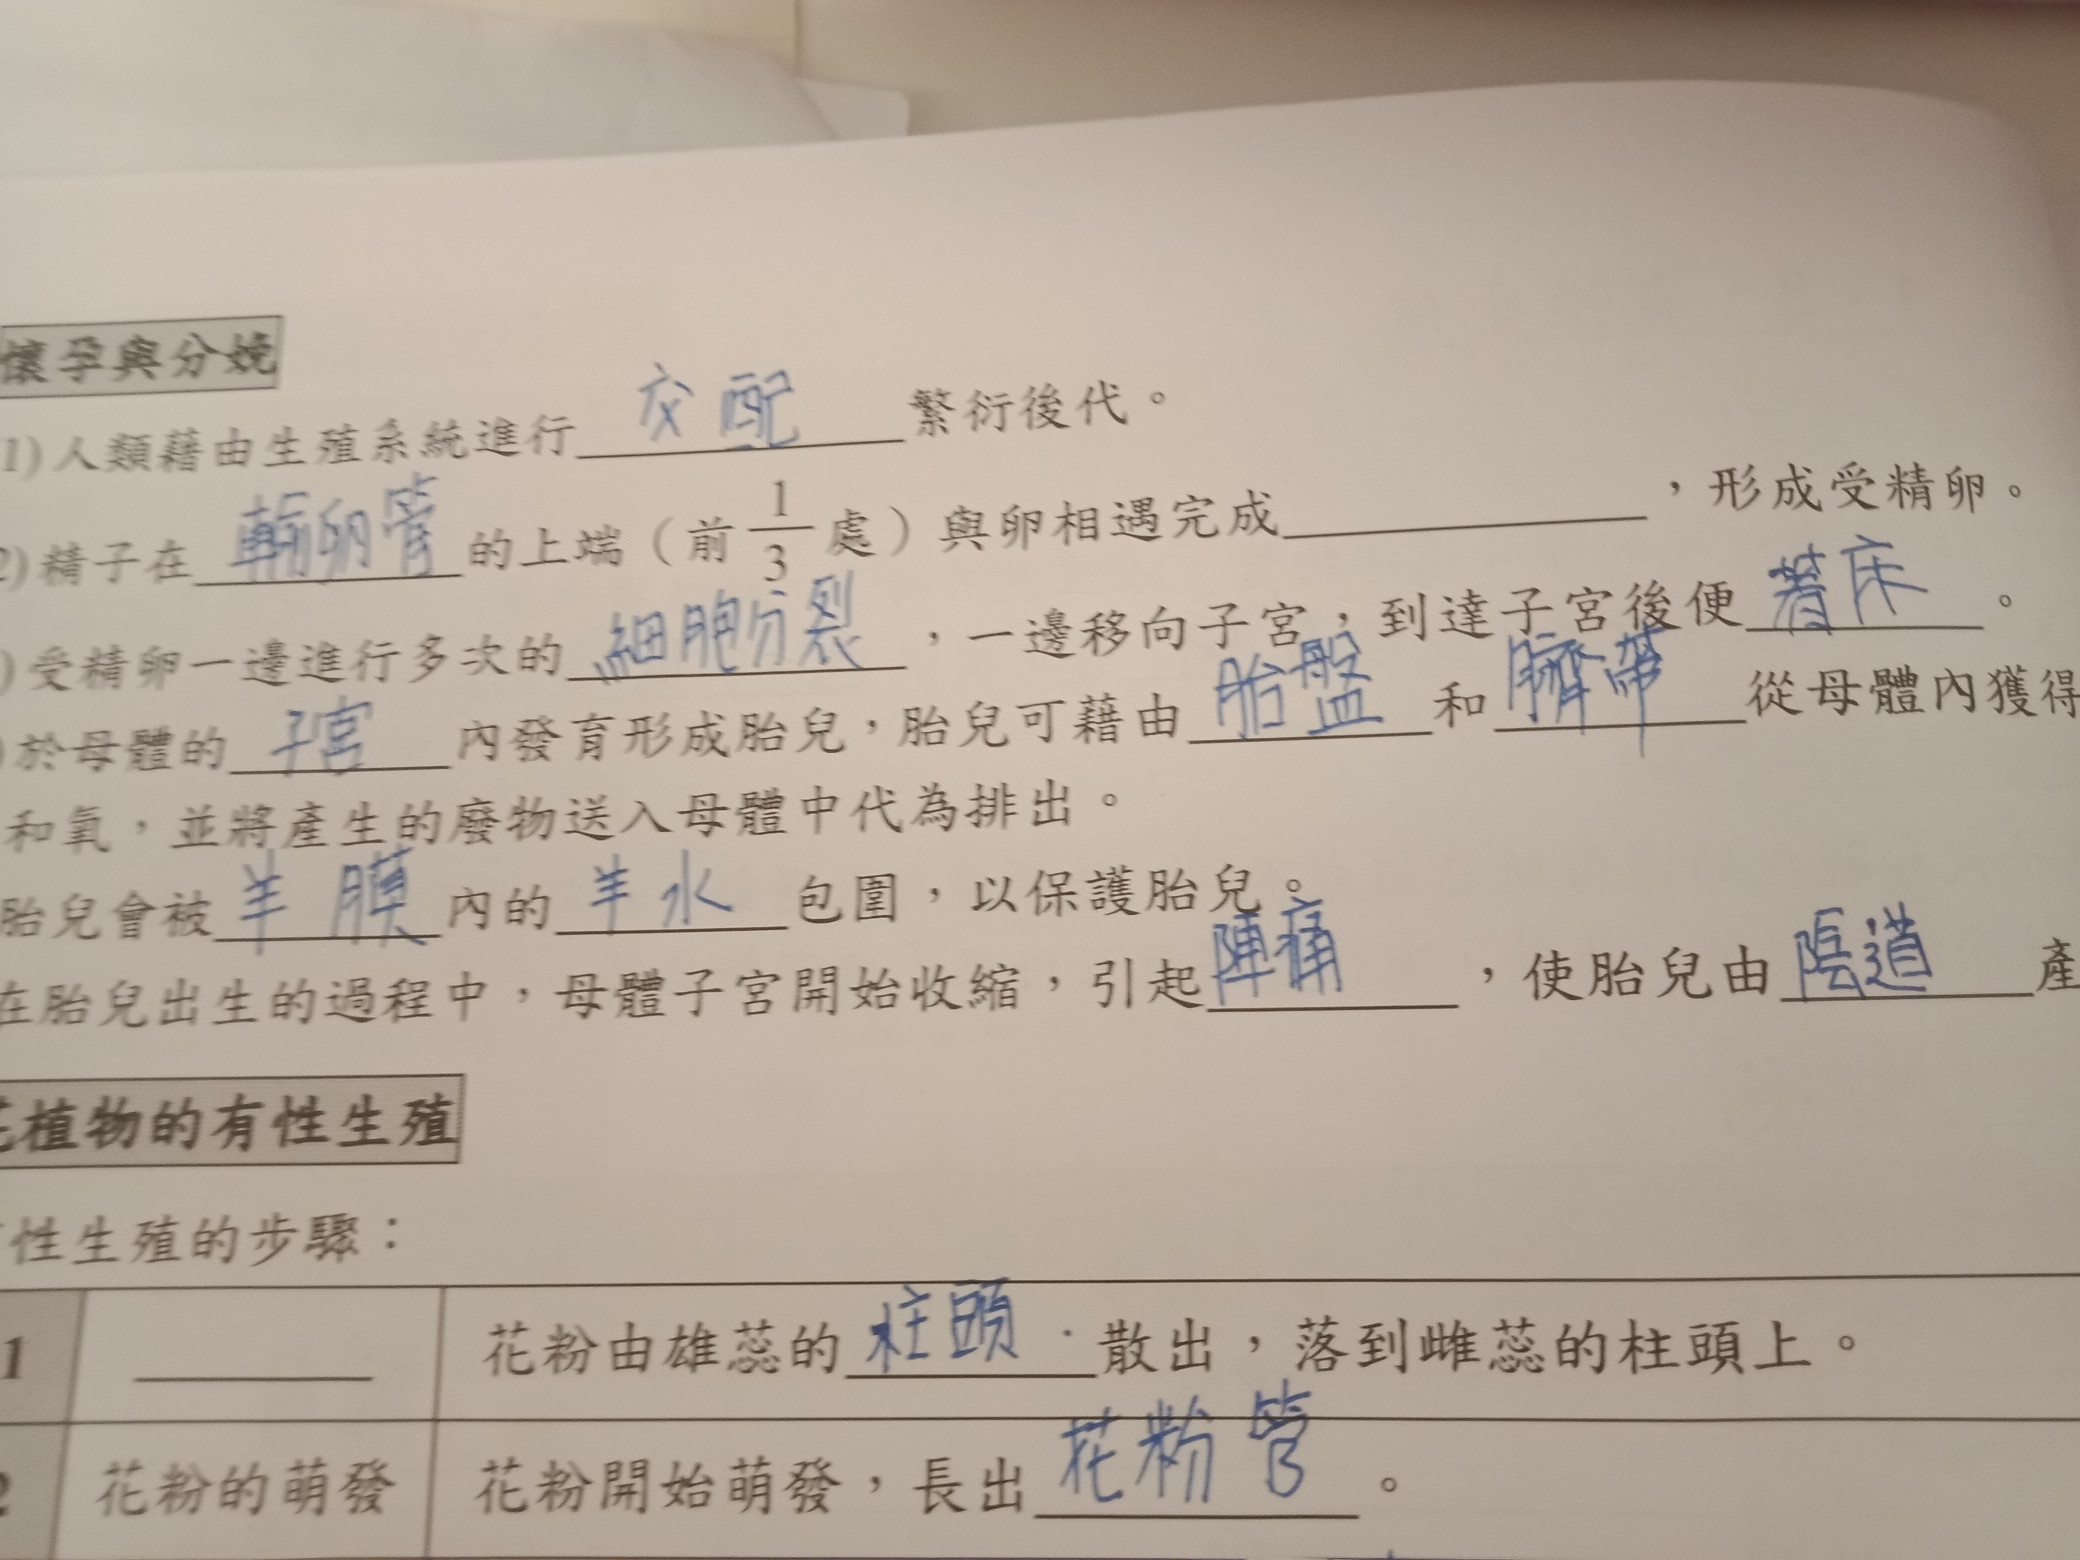 懷孕與分娩
1)人類藉由生殖系統進行交配繁衍後代。
2)精子在輸卵管的上端(前1/3處)與卵相遇完成______,形成受精卵。
)受精卵一邊進行多次的細胞分裂,一邊移向子宮,到達子宮後便著床。
)於母體的子宮內發育形成胎兒,胎兒可藉由胎盤和臍帶從母體內獲得
和氧,並將產生的廢物送入母體中代為排出。
胎兒會被羊膜內的羊水包圍,以保護胎兒。
在胎兒出生的過程中,母體子宮開始收縮,引起陣痛,使胎兒由陰道產
植物的有性生殖
性生殖的步驟:
1 ______ 花粉由雄蕊的柱頭散出,落到雌蕊的柱頭上。
2 花粉的萌發 花粉開始萌發,長出花粉管。